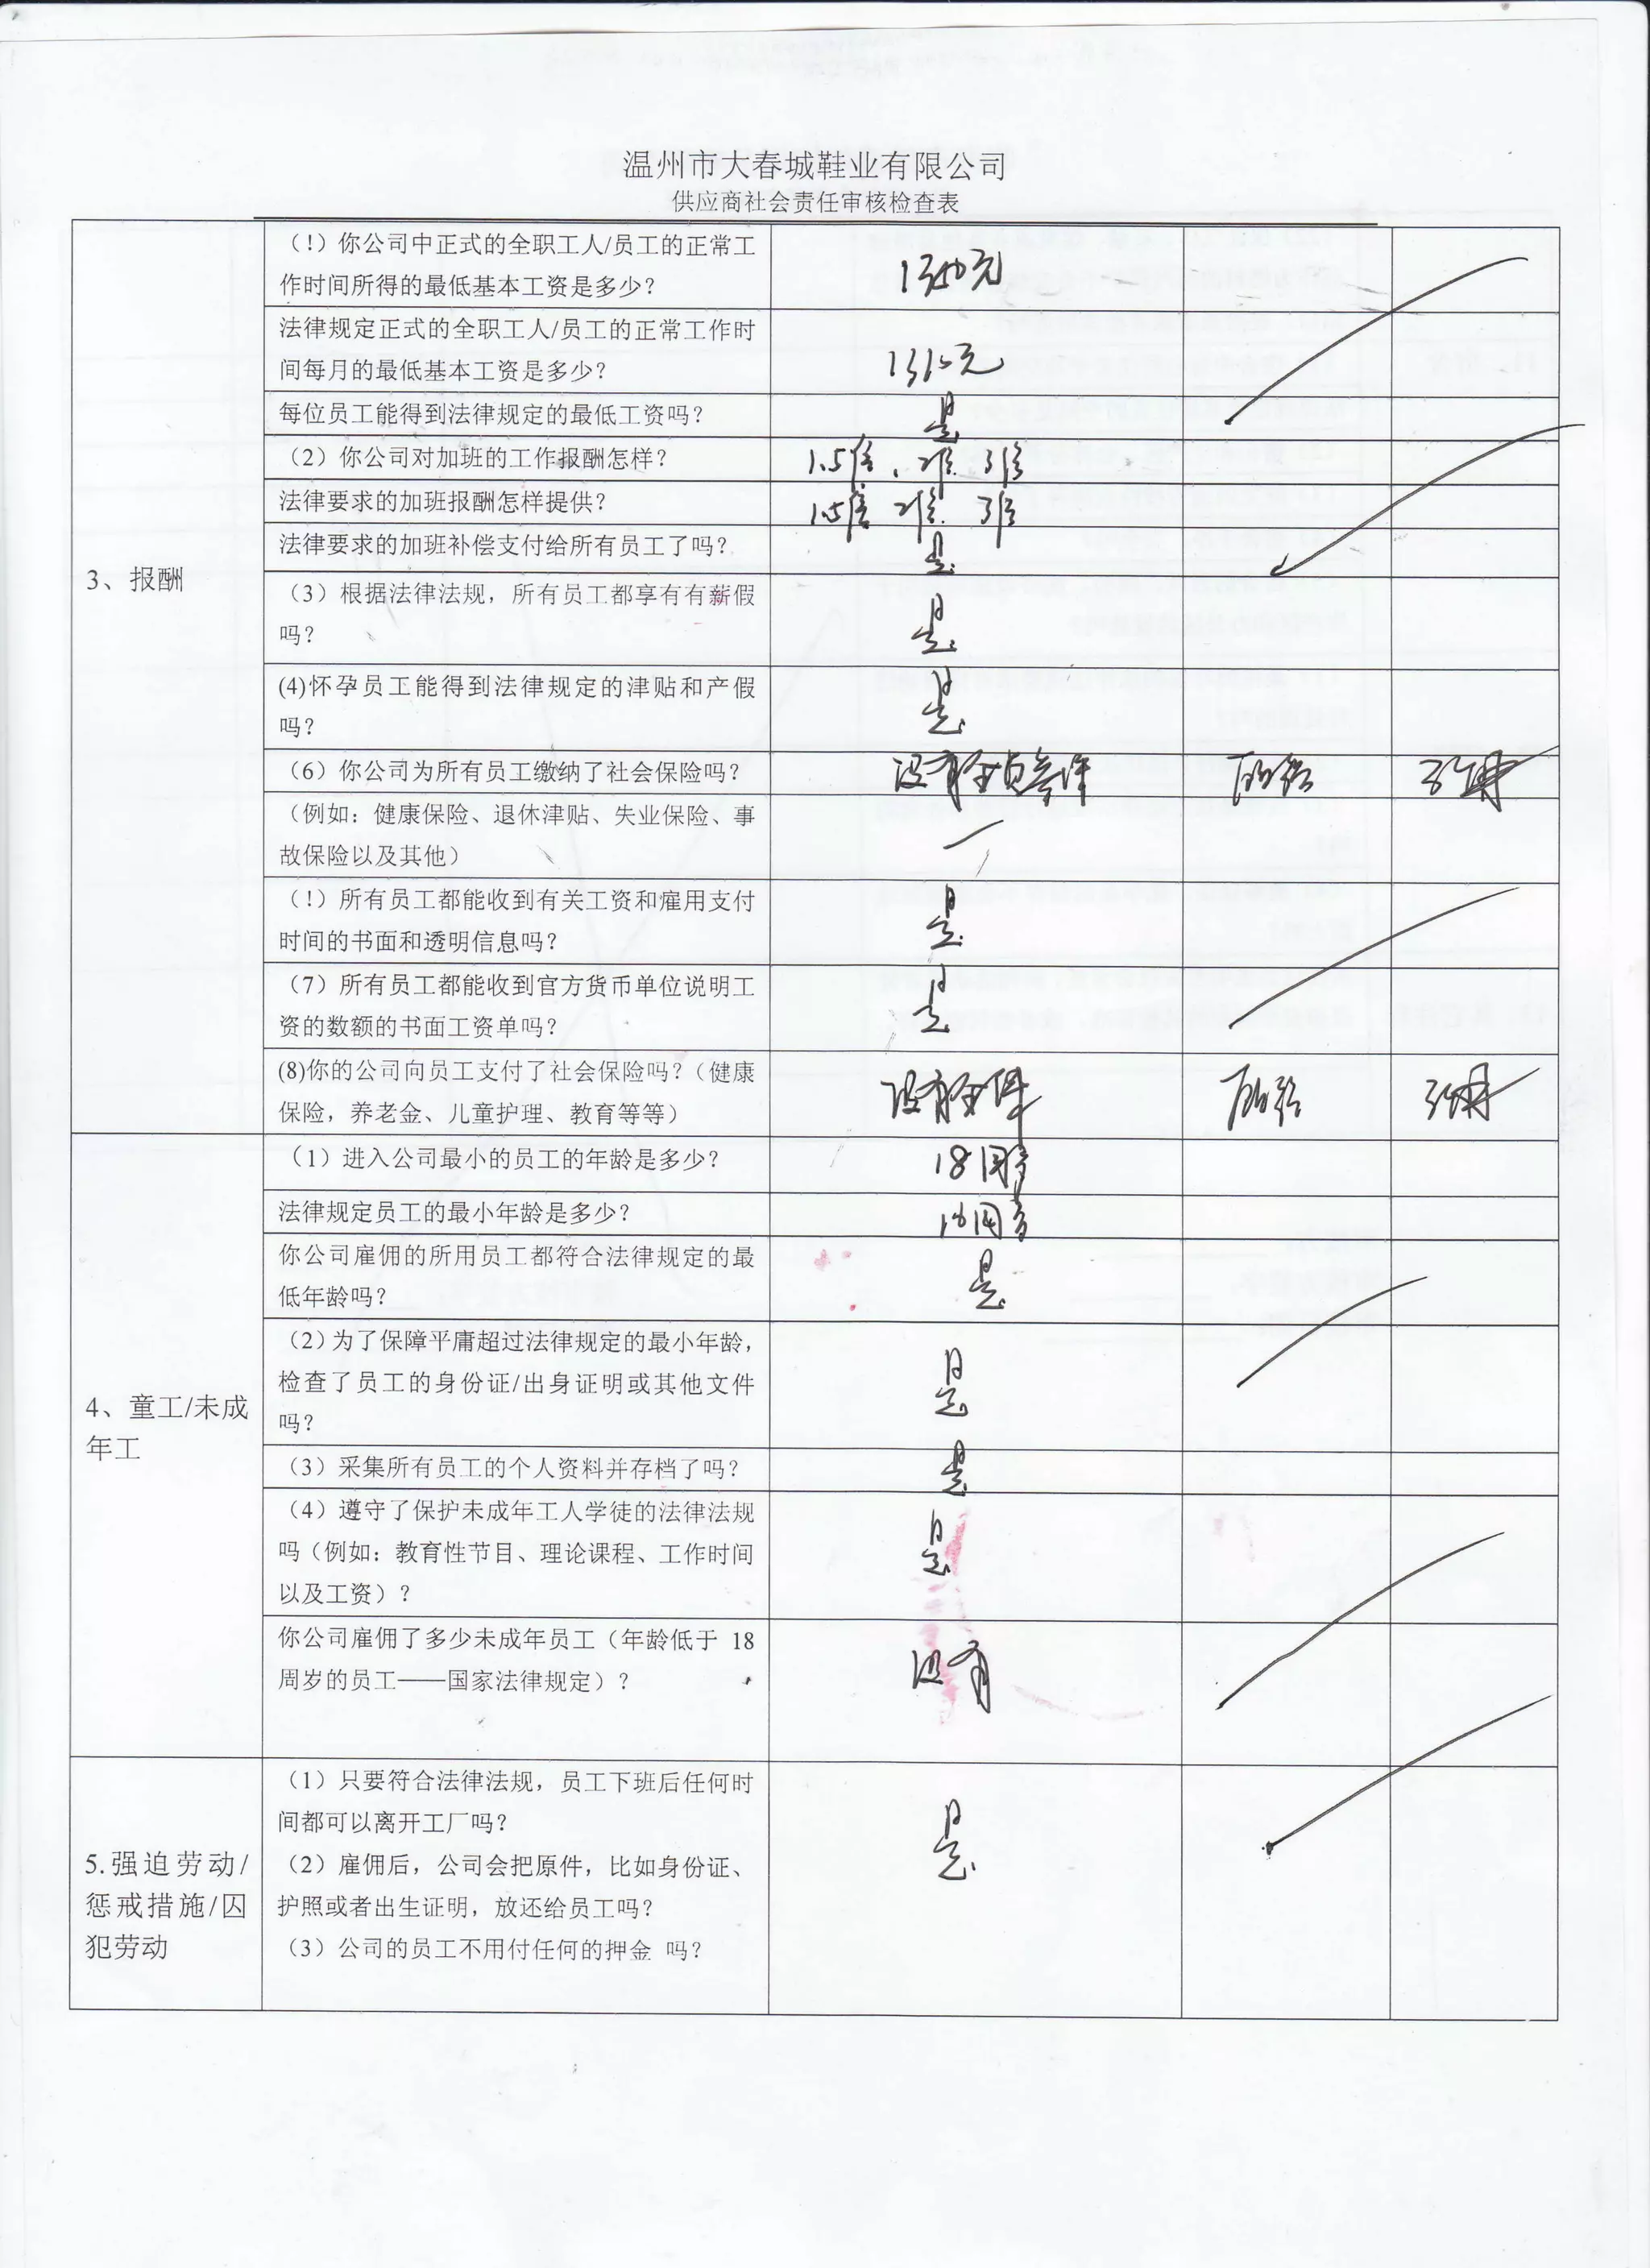 温州市大春城鞋业有限公司
供应商社会责任审核检查表
3、报酬
（!）你公司中正式的全职工人/员工的正常工
作时间所得的最低基本工资是多少？
法律规定正式的全职工人/员工的正常工作时
间每月的最低基本工资是多少？
1310元
每位员工能得到法律规定的最低工资吗？
是
（2）你公司对加班的工作报酬怎样？
1.5倍、2倍 3倍
法律要求的加班报酬怎样提供？
1.5倍 2倍 3倍
法律要求的加班补偿支付给所有员工了吗？
是
（3）根据法律法规，所有员工都享有有薪假
吗？
是
(4)怀孕员工能得到法律规定的津贴和产假
吗？
是
（6）你公司为所有员工缴纳了社会保险吗？
没有全员参保
（例如：健康保险、退休津贴、失业保险、事
故保险以及其他）
（!）所有员工都能收到有关工资和雇用支付
时间的书面和透明信息吗？
是
（7）所有员工都能收到官方货币单位说明工
资的数额的书面工资单吗？
是
(8)你的公司向员工支付了社会保险吗？（健康
保险，养老金、儿童护理、教育等等）
没有全保
4、童工/未成
年工
（1）进入公司最小的员工的年龄是多少？
18周岁
法律规定员工的最小年龄是多少？
16周岁
你公司雇佣的所用员工都符合法律规定的最
低年龄吗？
是
（2）为了保障平庸超过法律规定的最小年龄，
检查了员工的身份证/出身证明或其他文件
吗？
是
（3）采集所有员工的个人资料并存档了吗？
是
（4）遵守了保护未成年工人学徒的法律法规
吗（例如：教育性节目、理论课程、工作时间
以及工资）？
是
你公司雇佣了多少未成年员工（年龄低于 18
周岁的员工——国家法律规定）？
没有
5.强迫劳动/
惩戒措施/囚
犯劳动
（1）只要符合法律法规，员工下班后任何时
间都可以离开工厂吗？
（2）雇佣后，公司会把原件，比如身份证、
护照或者出生证明，放还给员工吗？
（3）公司的员工不用付任何的押金 吗？
是